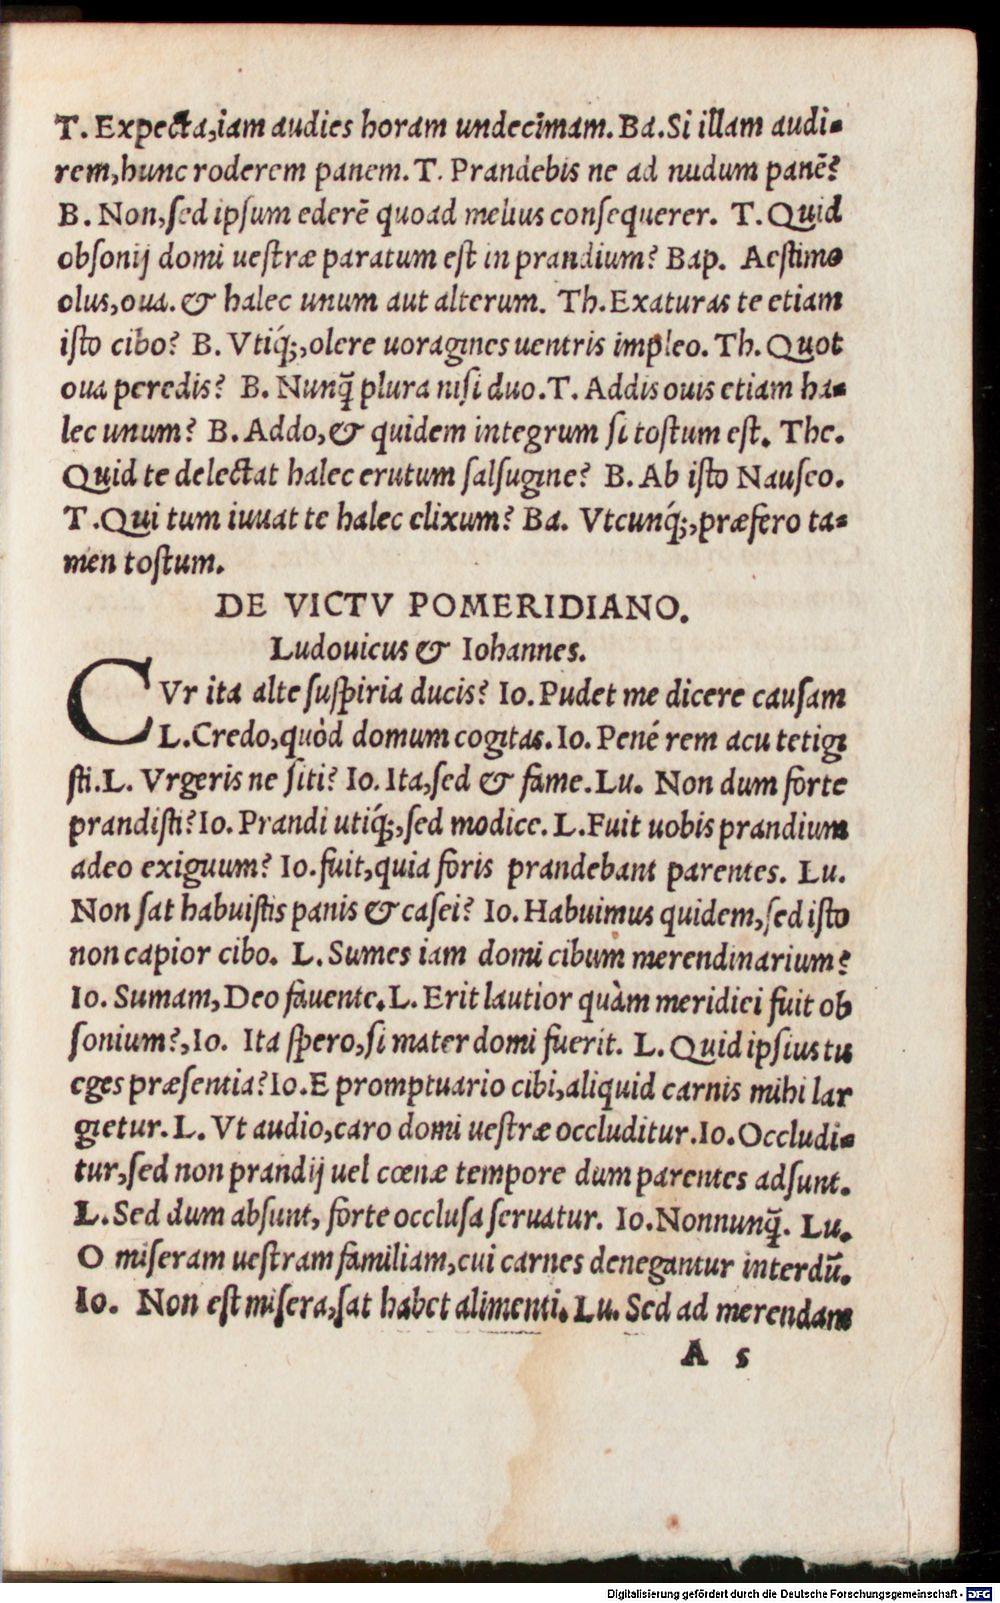 T. Expecta,iam audies horam undecimam. Ba.Si illam audi-
rem,hunc roderem panem. T. Prandebis ne ad nudum panẽ?
B. Non,sed ipsum ederẽ quoad melius consequerer. T. Quid
obsonij domi uestræ paratum est in prandium? Bap. Aestimo
olus,oua. & halec unum aut alterum. Th.Exaturas te etiam
isto cibo? B. Vtiq́;,olere uoragines uentris impleo. Th. Quot
oua peredis? B. Nunq̃ plura nisi duo. T. Addis ouis etiam ha-
lec unum? B. Addo,& quidem integrum si tostum est. The.
Quid te delectat halec erutum salsugine? B. Ab isto Nauseo.
T .Qui tum iuuat te halec elixum? Ba. Vtcunq́;,præfero ta-
men tostum.
DE VICTV POMERIDIANO.
Ludouicus & Iohannes.
CVr ita alte suspiria ducis? Io. Pudet me dicere causam
L.Credo,quòd domum cogitas. Io. Pené rem acu tetigi
sti. L. Vrgeris ne siti? Io. Ita,sed & fame. Lu. Non dum forte
prandisti? Io. Prandi utiq́;,sed modice. L.Fuit uobis prandium
adeo exiguum? Io. fuit,quia foris prandebant parentes. Lu.
Non sat habuistis panis & casei? Io. Habuimus quidem,sed isto
non capior cibo. L. Sumes iam domi cibum merendinarium?
Io. Sumam, Deo fauente. L. Erit lautior quàm meridiei fuit ob
sonium?,Io. Ita spero,si mater domi fuerit. L. Quid ipsius tu
eges præsentia? Io.E promptuario cibi,aliquid carnis mihi lar
gietur. L. Vt audio,caro domi uestræ occluditur. Io. Occludi-
tur,sed non prandij uel cœnæ tempore dum parentes adsunt.
L. Sed dum absunt, forte occlusa seruatur. Io. Nonnunq̃. Lu.
O miseram uestram familiam,cui carnes denegantur interdũ.
Io. Non est misera,sat habet alimenti. Lu. Sed ad merendam
A 5
Digitalisierung gefördert durch die Deutsche Forschungsgemeinschaft - DFG